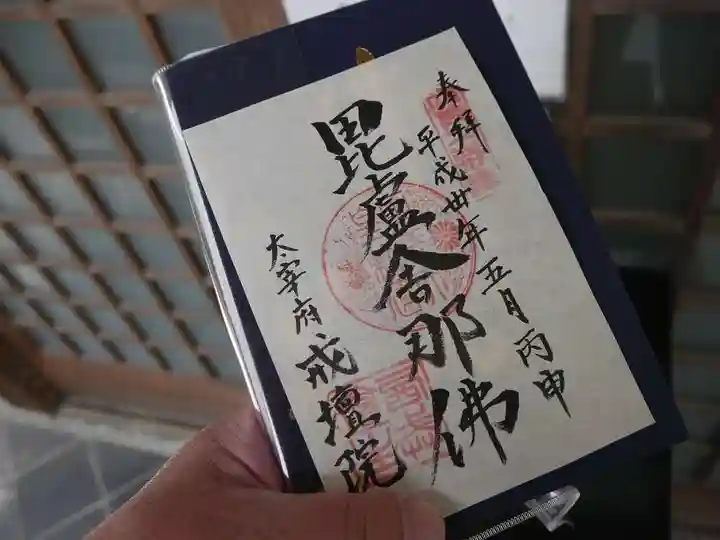 奉拝
平成卅年五月丙申
毘盧舎那佛
太宰府戒壇院